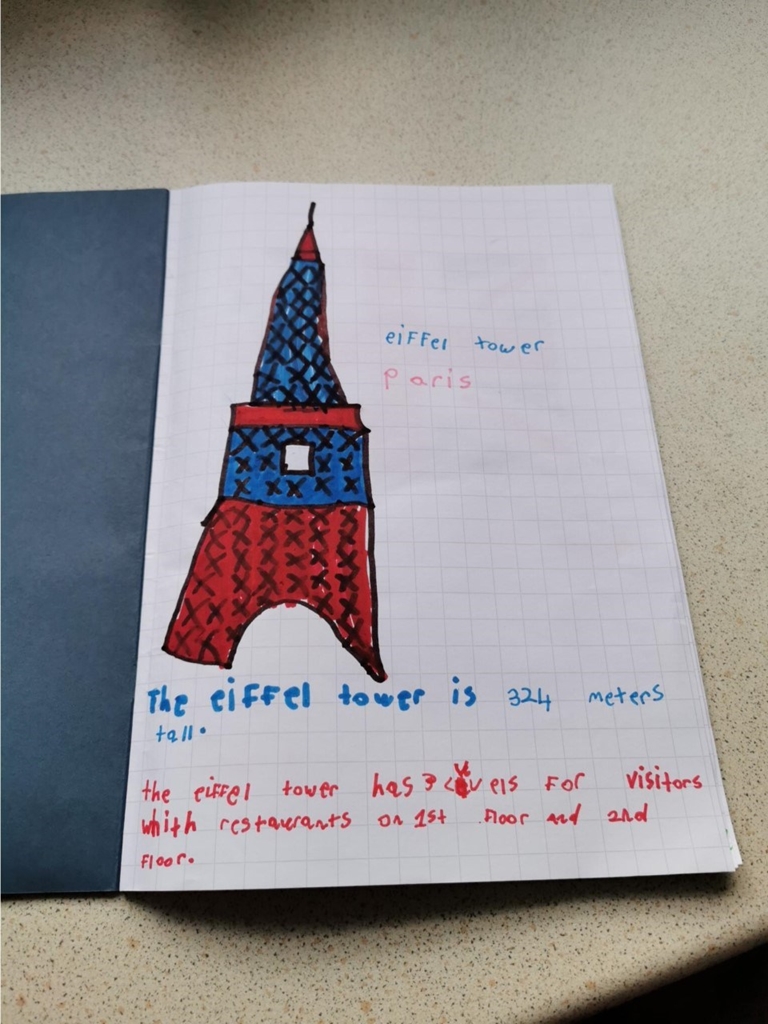 eiffel tower
paris
The eiffel tower is 324 meters
tall.
the eiffel tower has 3 levels for visitors
whith restaurants on 1st floor and 2nd
floor.